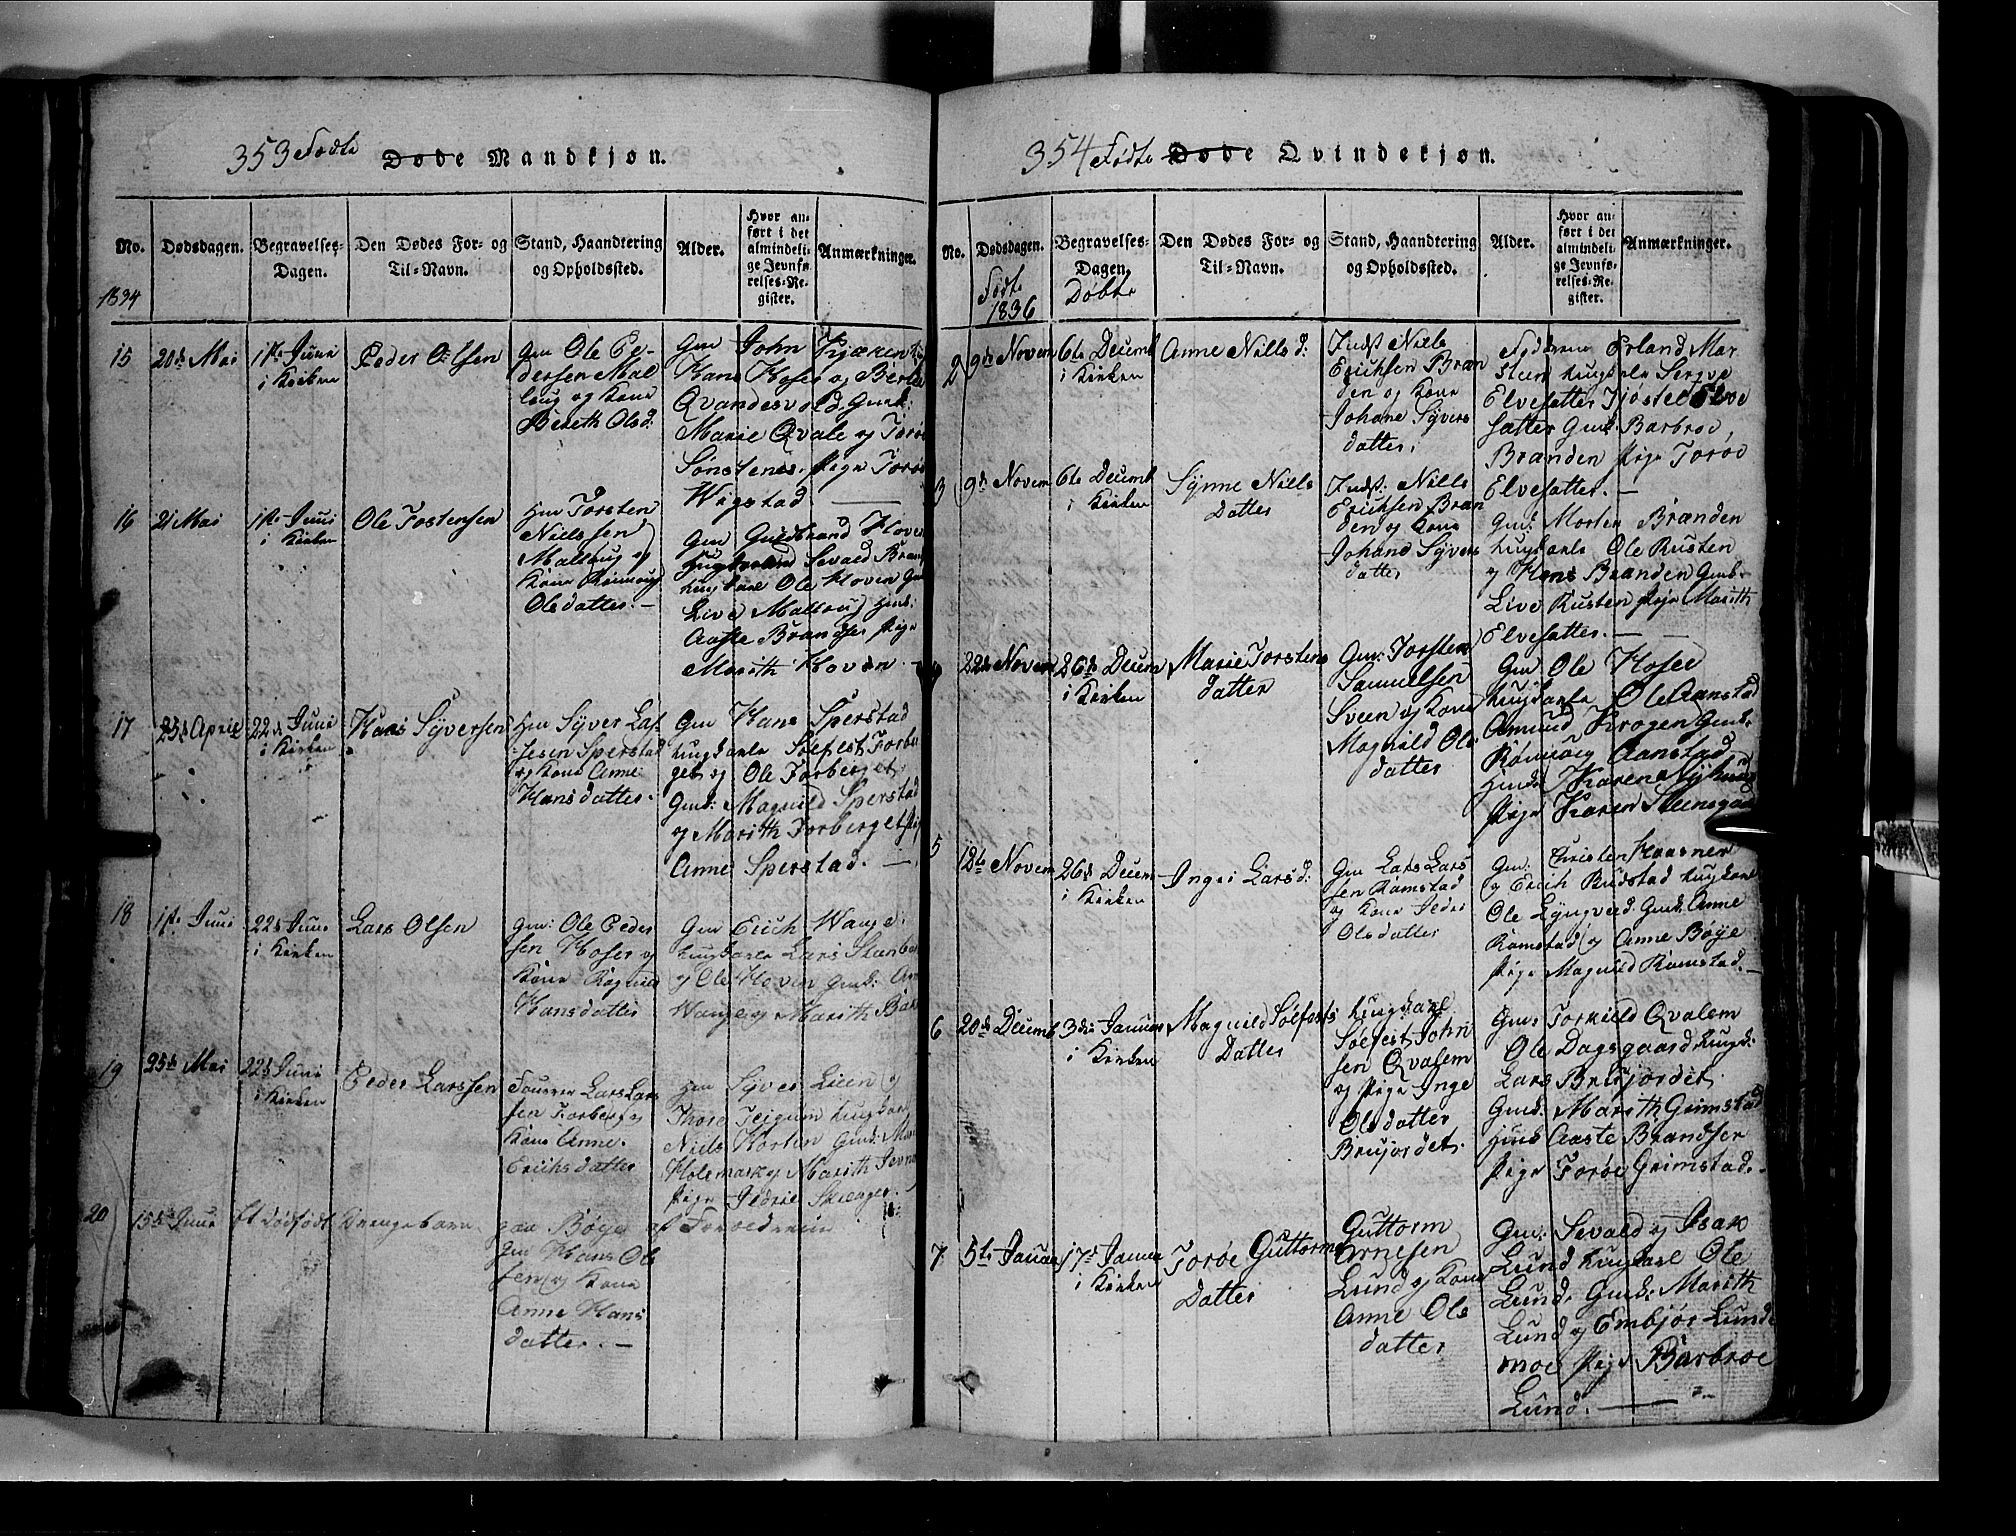 353 Fødte Døde Mandkjøn.
No.
Dødsdagen.
Begravelses-
Dagen.
Den Dødes For- og
Til-Navn.
Stand, Haandtering
og Opholdssted.
Alder.
Hvor an-
ført i det
almindeli-
ge Jevnfø-
relses-Re-
gister.
Anmærkninger.
1834
15
20de Mai
1ste Juni
i Kirken
Peder Olsen
Gm Ole Pe-
dersen Mal-
loug og Kone
Bereth Olsd:
Gm John Kjæren
Hans Hoser og Berte
Qvandesvold, Gmk:
Marie Qvale og Torøe
Sønstenes, Pige Torøe
Wigstad
16
21 Mai
1ste Juni
i Kirken
Ole Tostensen
Hm Torsten
Nielssen
Malloug og
Kone Rønnoug
Olsdatter. —
Gm Guldbrand Hoven
Sevald Brand
Ungkarle Ole Hoven Gmk
Live Malloug Hmk:
Aaste Brandser Pige
Marith Hoven. —
17
23de April
22de Juni
i Kirken
Hans Syversen
Hm Syver Laf-
sesen Sperstad
og Kone Anne
Hansdatter.
Gm Hans Sperstad
Ungkarle Solfest Forber
get og Ole Forberget.
Gmk: Magnild Sperstad
og Marith Forberget Pige
Anne Sperstad. —
18
1ste Juni
22de Juni
i Kirken
Lars Olsen
Gm: Ole Peder
sen Hoser og
Kone Ragnild
Hansdatter
Gm Erich Wange:
Ungkarle Lars Stanber
og Ole Hoven Gmk: An
Wange og Marith Bar
19
25de Mai
22de Juni
i Kirken
Peder Larssen
Lars Lars
sen Forberg og
Kone Anne
Erichsdatter
Hm Syver Lien og
Thore Teigum Ungkarl
Niels Horten Gmk: Mar
Holemark og Marith Jevne
Pige Jldrie Skienger.
20
15de Juni
Et dødfødt
Drengebarn
paa Bøye af Foreldrene
Gm Hans Ol
sen og Kone
Anne Hans
datter. —
354 Fødte Døde Qvindekjøn.
No.
Dødsdagen.
Fødte
1836
Begravelses-
Dagen.
Døbte
Den Dødes For- og
Til-Navn.
Stand, Haandtering
og Opholdssted.
Alder.
Hvor an-
ført i det
almindeli-
ge Jevnfø-
relses-Re-
gister.
Anmærkninger.
2
9de Novem
6te Decemb
i Kirken
Anne Nills d:
Indst Niels
Erichsen Bran
den og Kone
Johane Syvers
datter.
Erland Mar
stein Ungkarle Sergve
Elvesatter Tjøstel Elve
satter Gmk: Barbroe
Branden Pige Torøe
Elvesatter. —
3
9de Novem
6te Decemb
i Kirken
Synne Niels
Datter
Indst: Niels
Erichsen Bran
den og Kone
Johane Syvers
datter
Gm: Morten Brænden
Ungkarle Ole Rusten
og Hans Branden Gmk.
Live Rusten Pige Marith
Elvesatter. —
4
22de Novem
26de Decem
i Kirken
Marie Torstens
datter
Gm: Torsten
Samuelsen
Sveen og Kone
Magnild Ols
datter
Gm Ole Hoser
Ungkarle Ole Aanstad
Amund Krogen Gmk.
Rønnoug Aanstad
Hmk: Karen Nyhuus
Pige Karen Steensgaa
5
12te Novem
26de Decem
i Kirken
Ingri Larsd:
Gm Lars Lars
sen Ramstad
og Kone Jldri
Olsdatter
Gm: Christen Haasner
og Erich Rudstad Ungkarl
Ole Lyngved: Gmk: Anne
Ramstad og Anne Bøye
Pige Magnild Ramstad. —
6
20de Decemb
3die Januar
i Kirken
Magnild Solfests
Datter
Ungkarl
Solfest John
sen Qvalem
og Pige Inge
Olsdatter
Brujordet.
Gm: Torkild Qvalem
Ole Dagsgaard Ungk:
Lars Brujordet.
Gmk: Marith Grimstad
Hmk Aaste Brandser
Pige Torøe Grimstad. —
7
5te Januar
17de Januar
i Kirken
Torøe Guttorms
Datter
Guttorm
Arnesen
Lund og Kone
Anne Ols
datter
Gm: Sevald og Isax
Lund Ungkarl Ole
Lund. Gmk: Marith
Lund og Embjør Lunde
moe Pige Barbroe
Lund. —